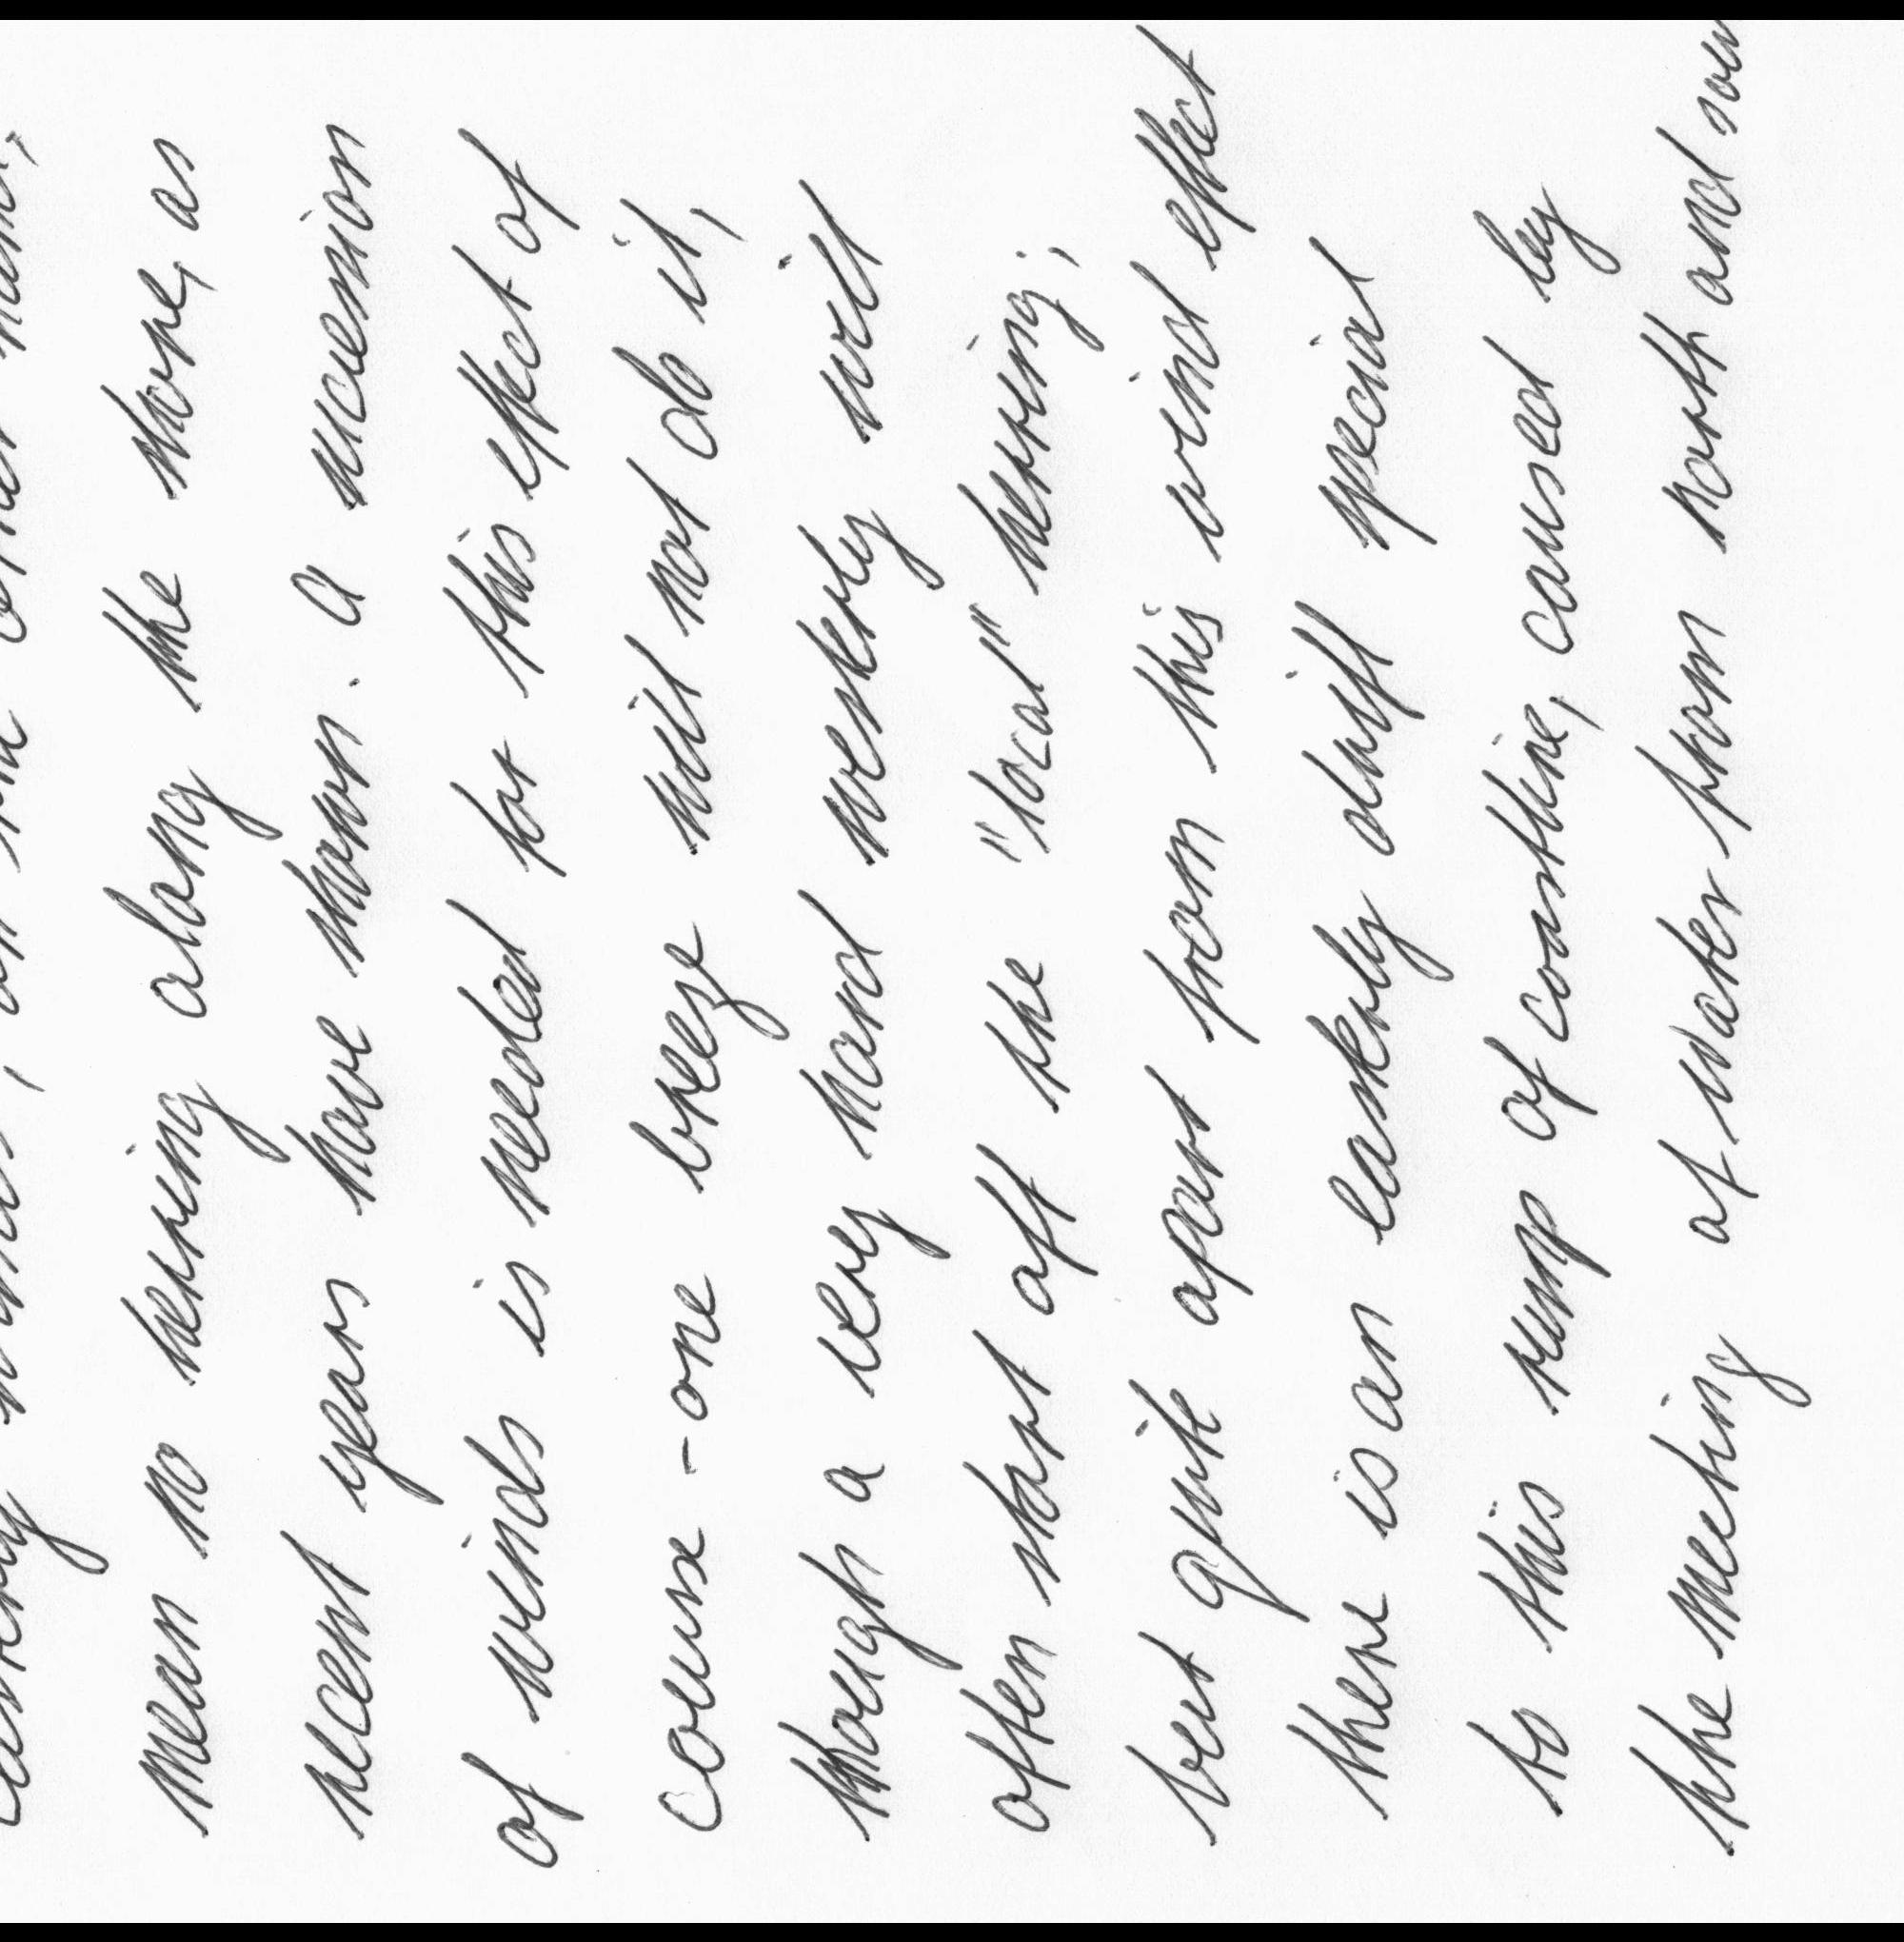 mean no herring along the shore, as
recent years have shown. A succession
of winds is needed for this effect of
course - one breeze will not do it,
though a very hard westerly will
often start off the "local" herring;
but quite apart from this wind effect
there is an easterly drift special
to this rump of coastline, caused by
the meeting of water from north and sou